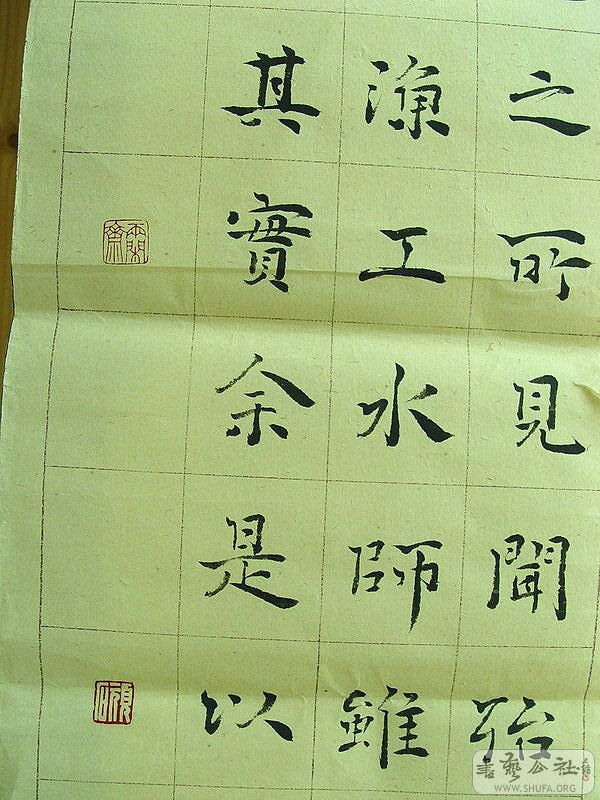 之所見聞殆
漁工水師雖
其實余是以
書藝公社
WWW.SHUFA.ORG